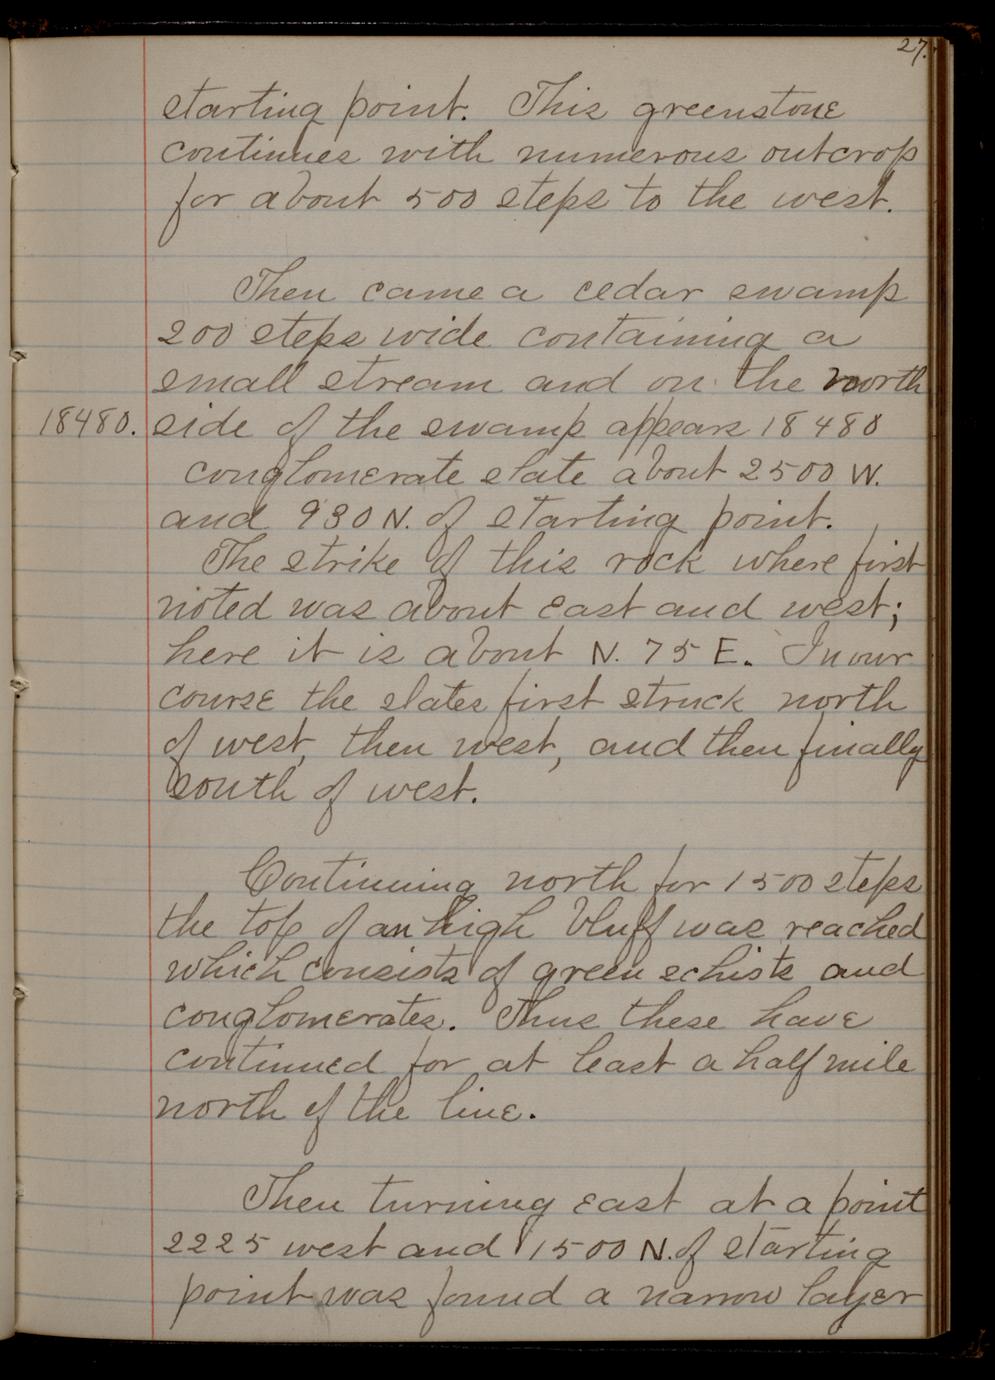 27.
starting point. This greenstone
continues with numerous outcrops
for about 500 steps to the west.
Then came a cedar swamp
200 steps wide containing a
small stream and on the north
18480. side of the swamp appears 18480
conglomerate slate about 2500 W.
and 930 N. of starting point.
The strike of this rock where first
noted was about east and west;
here it is about N. 75 E. In our
course the slates first struck north
of west, then west, and then finally
south of west.
Continuing north for 1500 steps
the top of an high bluff was reached
which consists of green schists and
conglomerates. Thus these have
continued for at least a half mile
north of the line.
Then turning east at a point
2225 west and 1500 N. of starting
point was found a narrow layer